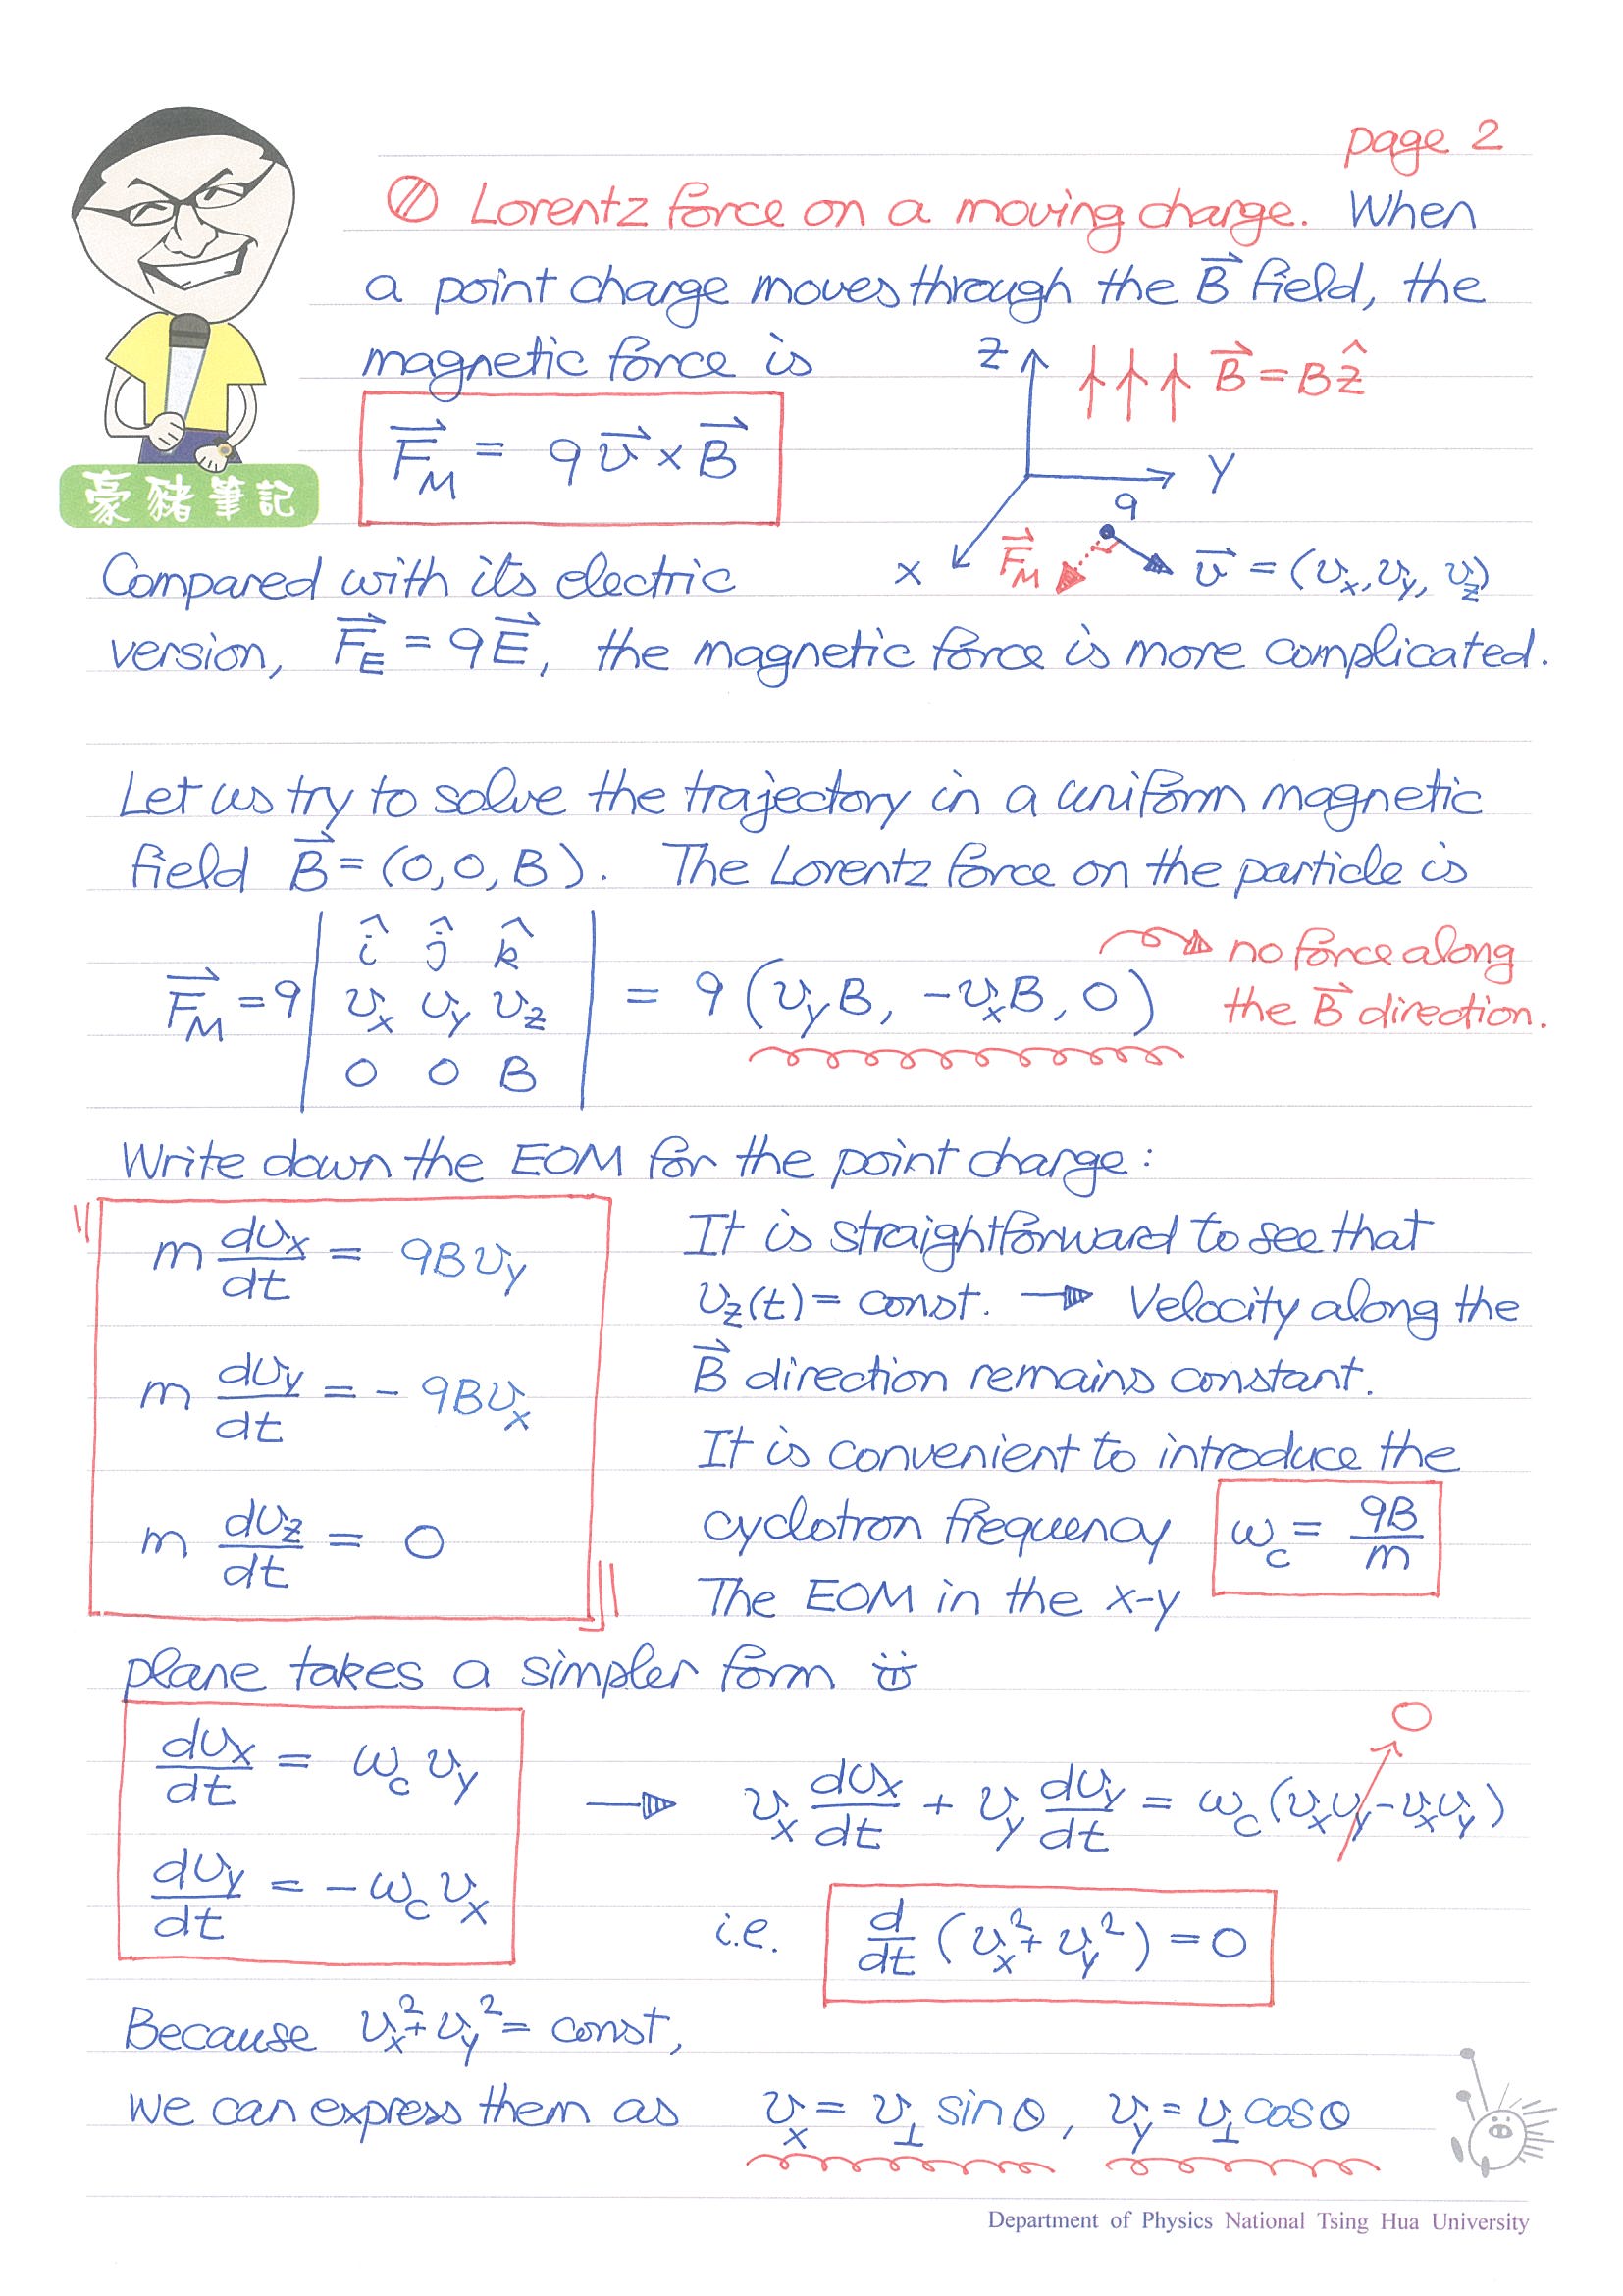 page 2
Lorentz force on a moving charge. When
a point charge moves through the B⃗ field, the
magnetic force is
z B⃗ = Bẑ
F⃗_M = q v⃗ × B⃗
y
q
豪豬筆記
x F⃗_M v⃗ = (v_x, v_y, v_z)
Compared with its electric
version, F⃗_E = qE⃗, the magnetic force is more complicated.
Let us try to solve the trajectory in a uniform magnetic
field B⃗ = (0, 0, B). The Lorentz force on the particle is
î ĵ k̂
F⃗_M = q | v_x v_y v_z | = q (v_y B, -v_x B, 0)
0 0 B
no force along
the B⃗ direction.
Write down the EOM for the point charge:
m dv_x/dt = qB v_y
m dv_y/dt = - qB v_x
m dv_z/dt = 0
It is straightforward to see that
v_z(t) = const. → Velocity along the
B⃗ direction remains constant.
It is convenient to introduce the
cyclotron frequency ω_c = qB/m
The EOM in the x-y
plane takes a simpler form
dv_x/dt = ω_c v_y
dv_y/dt = -ω_c v_x
→ v_x dv_x/dt + v_y dv_y/dt = ω_c (v_x v_y - v_x v_y) 0
i.e. d/dt (v_x² + v_y²) = 0
Because v_x² + v_y² = const,
we can express them as v_x = v_⊥ sinθ, v_y = v_⊥ cosθ
Department of Physics National Tsing Hua University